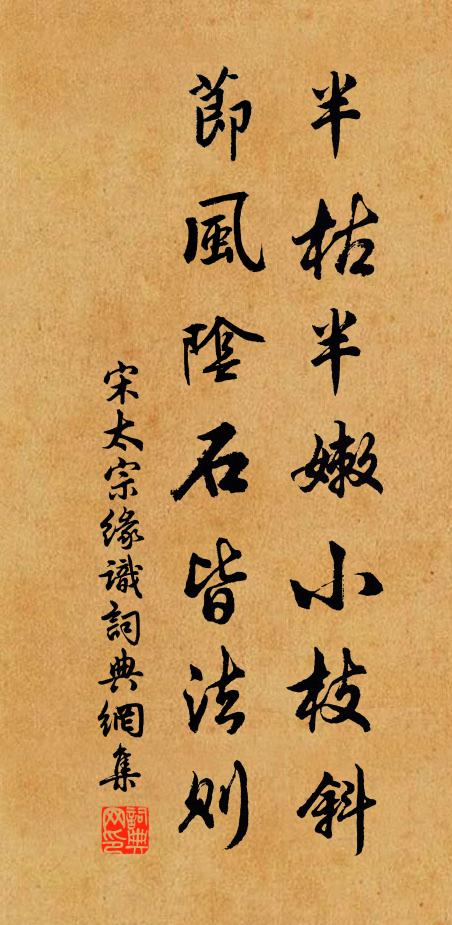 半枯半嫩小枝斜
節風陰石皆法則
宋太宗緣識詞典網集
詞典网印